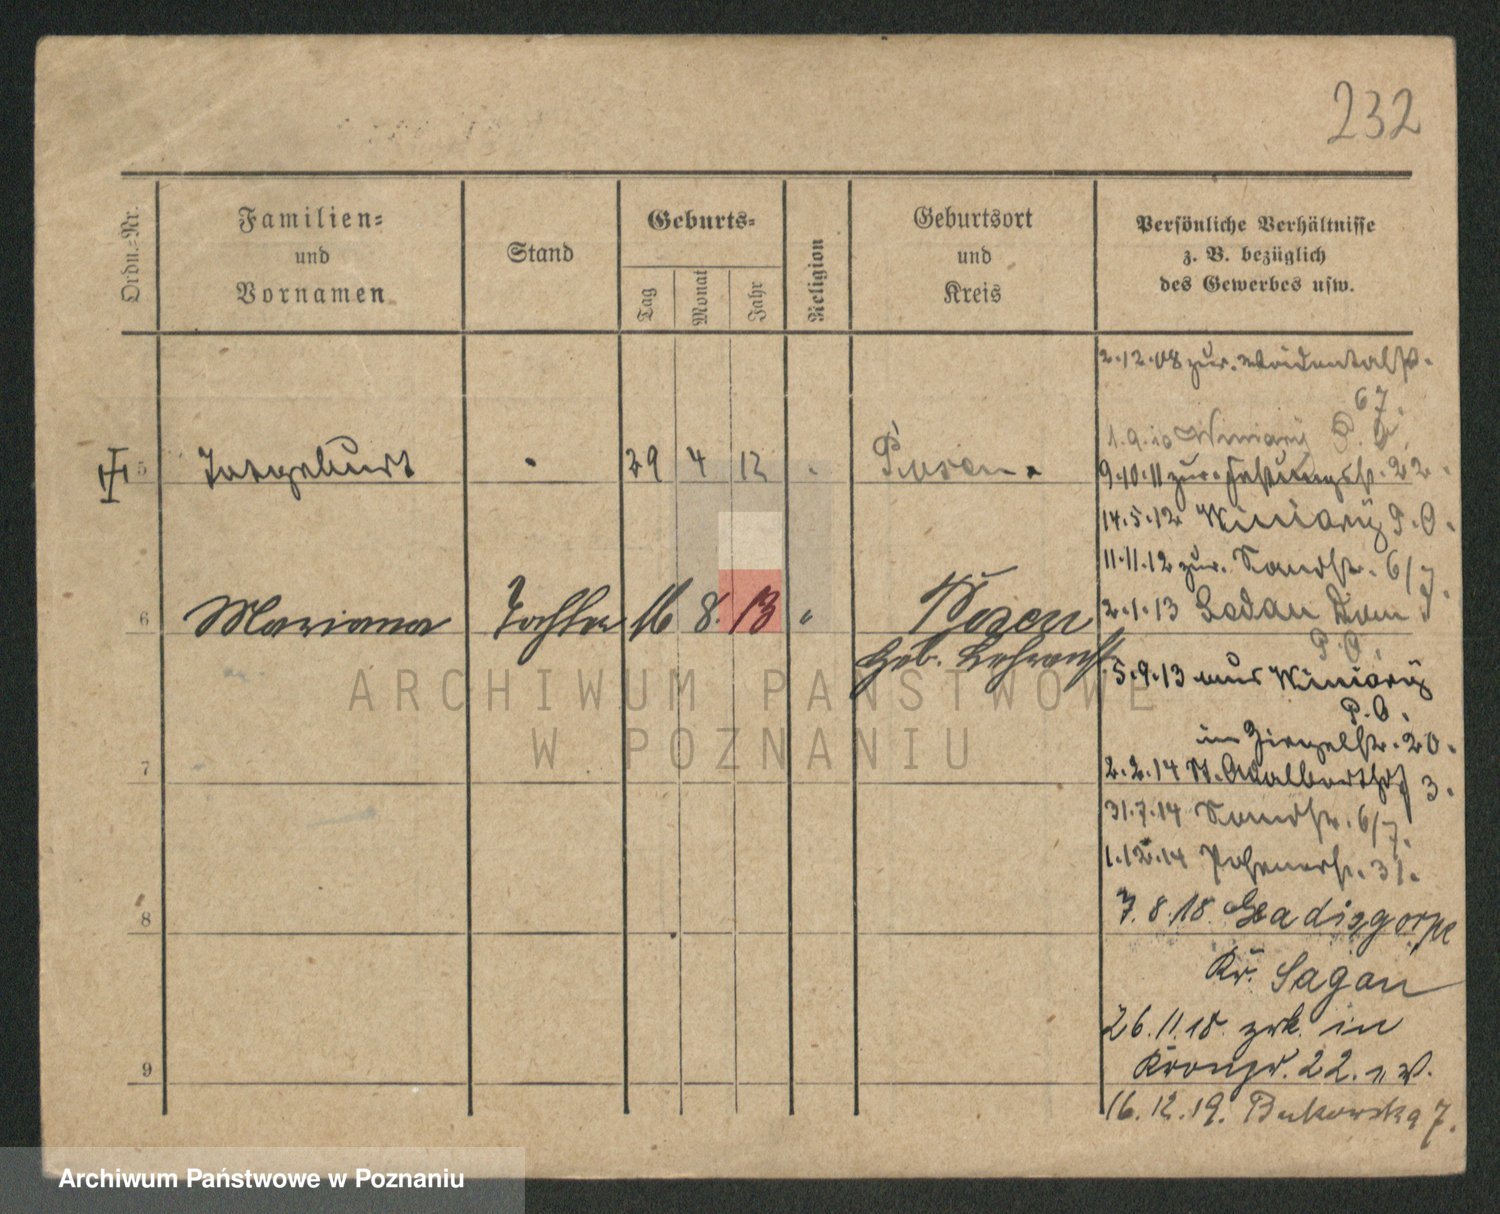 232
Ordn.-Nr.
Familien-
und
Vornamen
Stand
Geburts-
Tag
Monat
Jahr
Religion
Geburtsort
und
Kreis
Persönliche Verhältnisse
z. B. bezüglich
des Gewerbes usw.
2.12.08 zur. Weidentalst.
67.
1.9.10 Winiary P. O.
5 Totgeburt 29 4 12 Posen.
9.10.11 zur. Festungsst. 22.
14.5.12 Winiary P. O.
11.11.12 zur. Sandstr. 6/7.
6 Mariana Tochter 16 8. 13 " Posen
2.1.13 Sedan
P. O.
geb.
5.9.13 aus Winiary
P. O.
in Ziegelstr. 20.
7
2.2.14 St. Adalbertstr 3.
31.7.14 Sandstr. 6/7.
1.12.14 31.
8
7.8.18.
Kr. Sagan
26.11.18. zrk. in
Kronpr. 22.
9
16.12.19. Bukowska 7.
ARCHIWUM PAŃSTWOWE
W POZNANIU
Archiwum Państwowe w Poznaniu